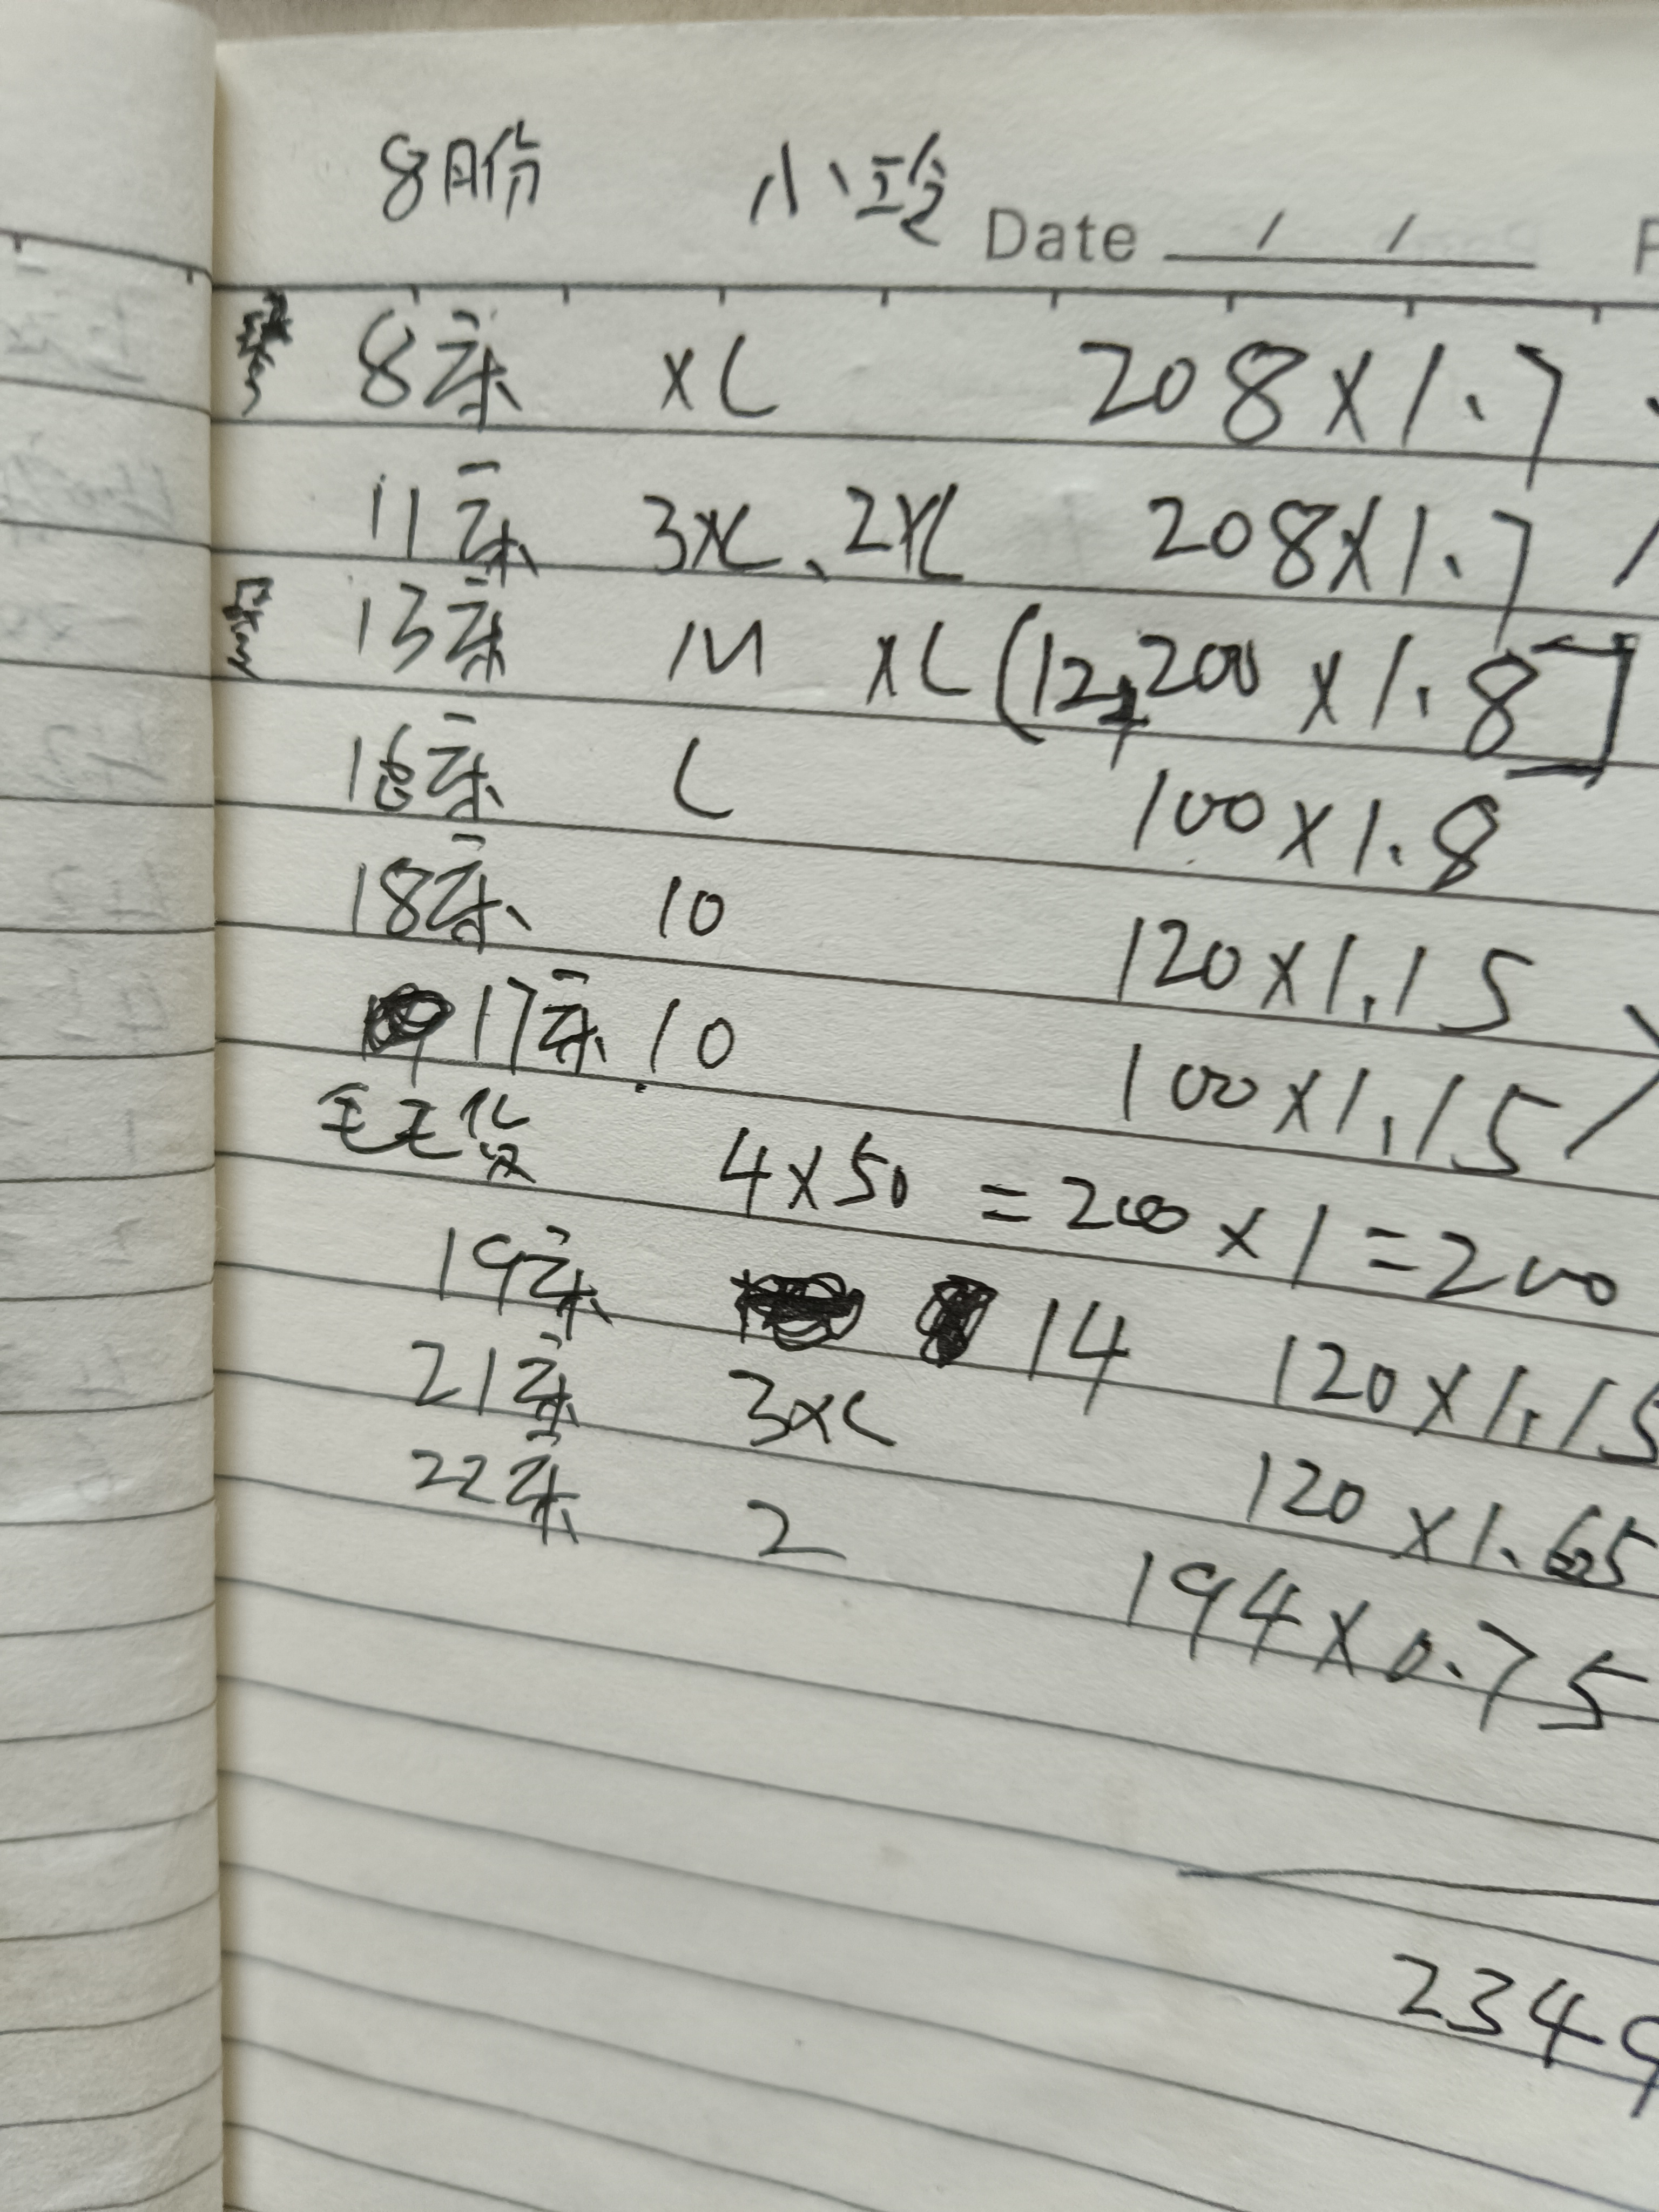 8月份 小玲
Date / /
8床 XL 208×1.7
11床 3XL、2XL 208×1.7
13床 M XL (12, 200×1.8]
16床 L 100×1.8
18床、 10 120×1.15
17床 10 100×1.15
毛毛货 4×50 =200×1=200
19床 14 120×1.15
21床 3XL 120×1.65
22床 2 194×0.75
2349